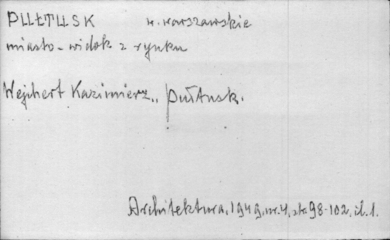 PUŁTUSK w. warszawskie
miasto - widok z rynku
Wejchert Kazimierz,, Pułtusk.
Architektura, 1949, nr. 4, str. 98-102, il. 1.